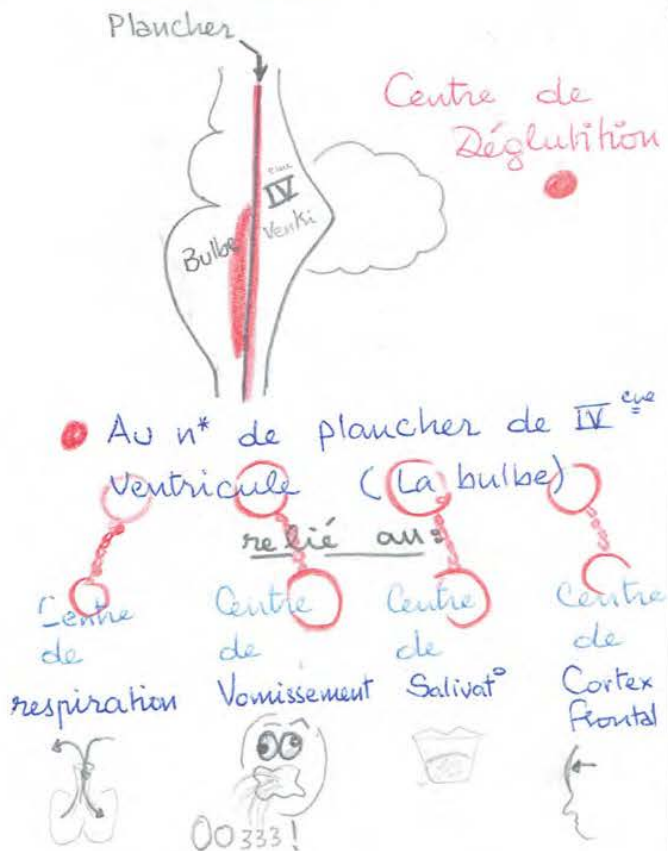 Plancher
Centre de
Déglutition
IV ème
Venki
Bulbe
Au n* de plancher de IV ème
Ventricule (La bulbe)
relié au:
Centre de respiration
Centre de Vomissement
Centre de Salivat°
Centre de Cortex frontal
Oo333!